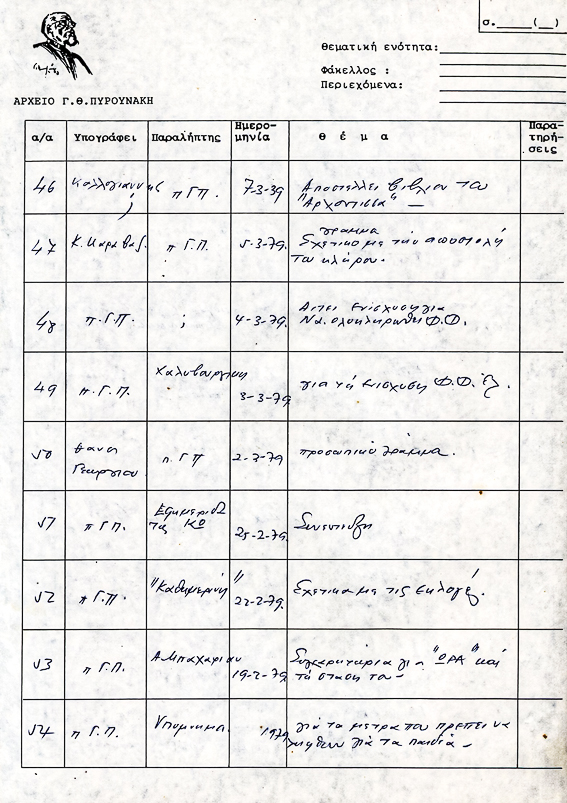 σ.____(__)
θεματική ενότητα:
Φάκελλος :
Περιεχόμενα:
ΑΡΧΕΙΟ Γ.Θ.ΠΥΡΟΥΝΑΚΗ
α/α Υπογράφει Παραλήπτης Ημερο-μηνία θ έ μ α Παρα-τηρή-σεις
46 π Γ.Π. 7-3-39 Αποστέλλει βιβλίον του
"Αρχόντισσα" —
47 Κ. Καραβας. π Γ.Π. 5-3-79. γράμμα
Σχετικο με την αποστολή
του κλήρου.
48 π.Γ.Π. ; 4-3-79. Αιτει ενίσχυση για
να ολοκληρωθή Φ.Φ.
49 π.Γ.Π. 3-3-79 για τή ενίσχυση Φ.Φ.
50 Γεωργιου. π.Γ Π 2-3-79 προσωπικό γράμμα.
51 π Γ.Π. Εφημεριδα
της ΚΩ 25-2-79. Συνεντευξη
52 π Γ.Π. "Καθημερινή" 22-2-79. Σχετικα με τις εκλογές.
53 π Γ.Π. Α.Μπαχαριαν 19-2-79 Συγχαρητήρια για "ΩΡΑ" και
τή σταση του -
54 π Γ.Π. Υπομνημα. 1979 γιά τα μετρα που πρεπει να
ληφθουν γιά τα παιδιά -